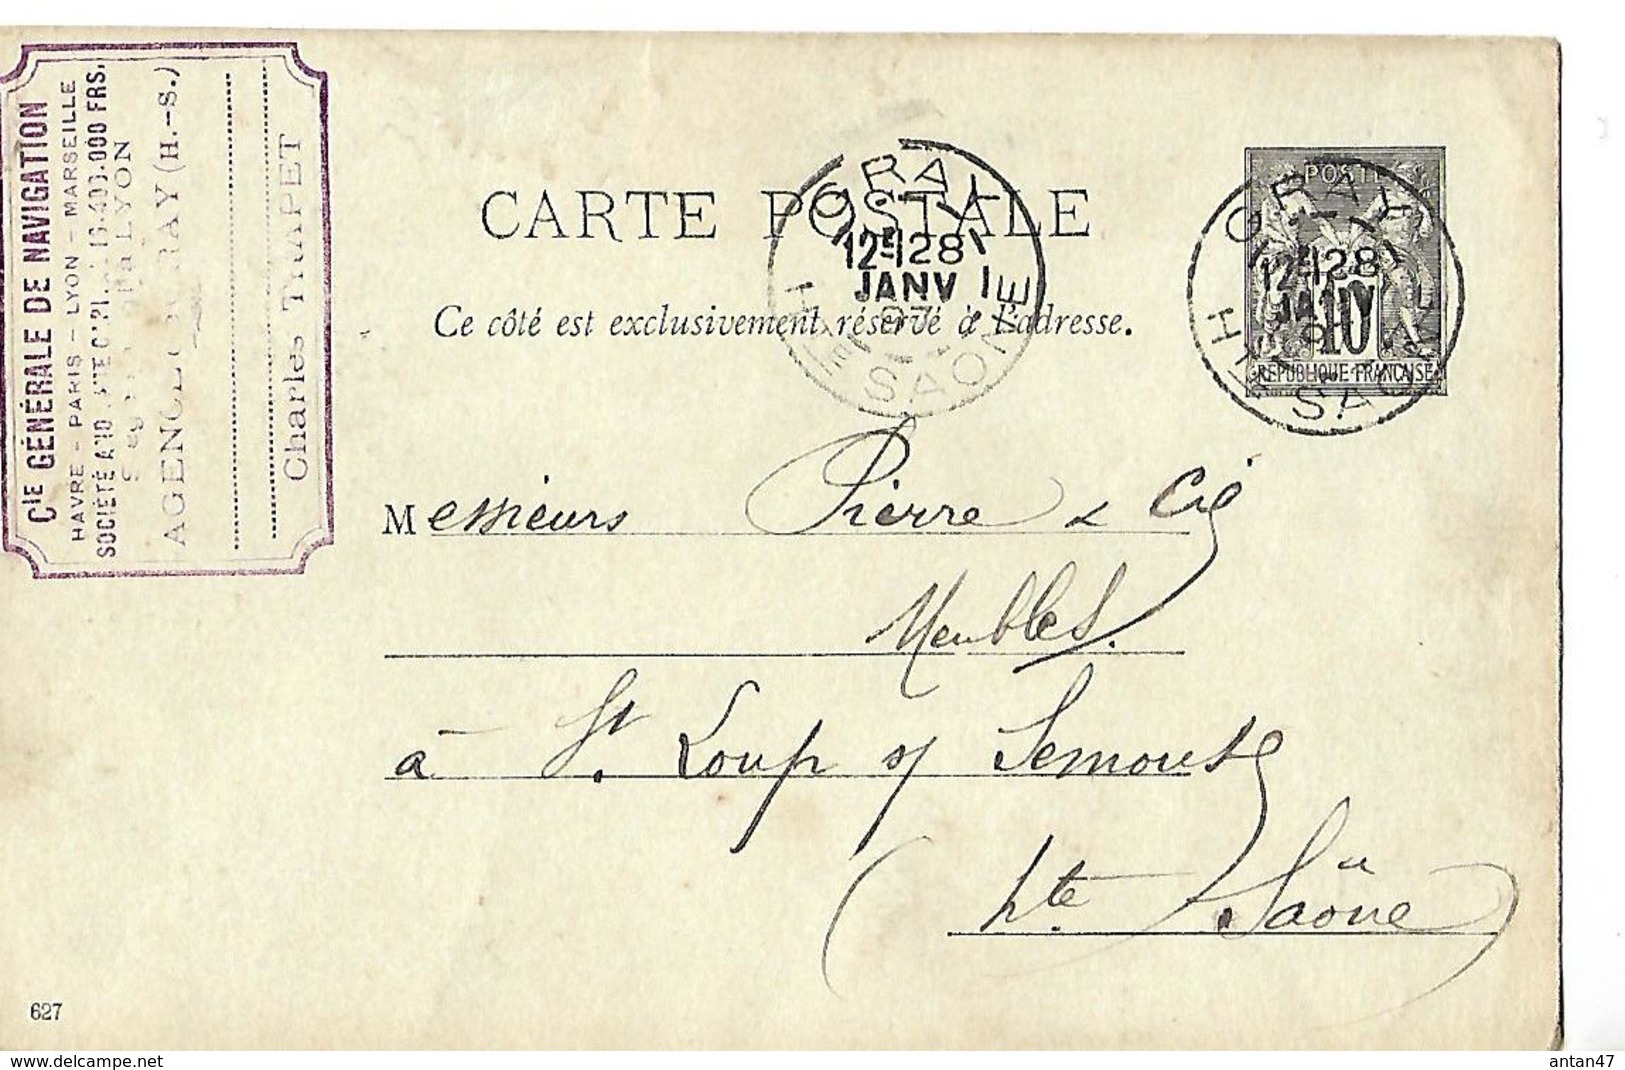 Cie GÉNÉRALE DE NAVIGATION
HAVRE - PARIS - LYON - MARSEILLE
SOCIÉTÉ 000 FRS.
à LYON
AGENCE GRAY (H.-S.)
Charles TRAPET
CARTE POSTALE
Ce côté est exclusivement réservé à l'adresse.
GRAY
12E 28
JANV
97
HTE SAONE
POSTES
10
REPUBLIQUE FRANCAISE
GRAY
12E 28
JANV
HTE SAONE
Messieurs Pierre & Cie
Meubles.
à St. Loup s/ Semouse
(hte. Saône)
627
www.delcampe.net
antan47